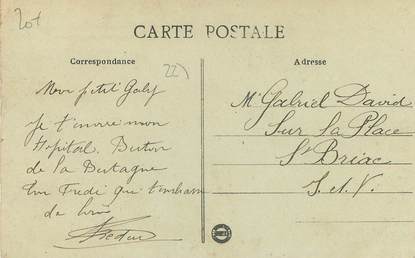 20f
CARTE POSTALE
Correspondance
Adresse
22)
Mon petit Gaby
Je t'envoie mon
Hôpital. Breton
de la Bretagne
Ton Fredi qui t'embrasse
de loin
Mr Gabriel David
Sur la Place
St Briac
I. et V.